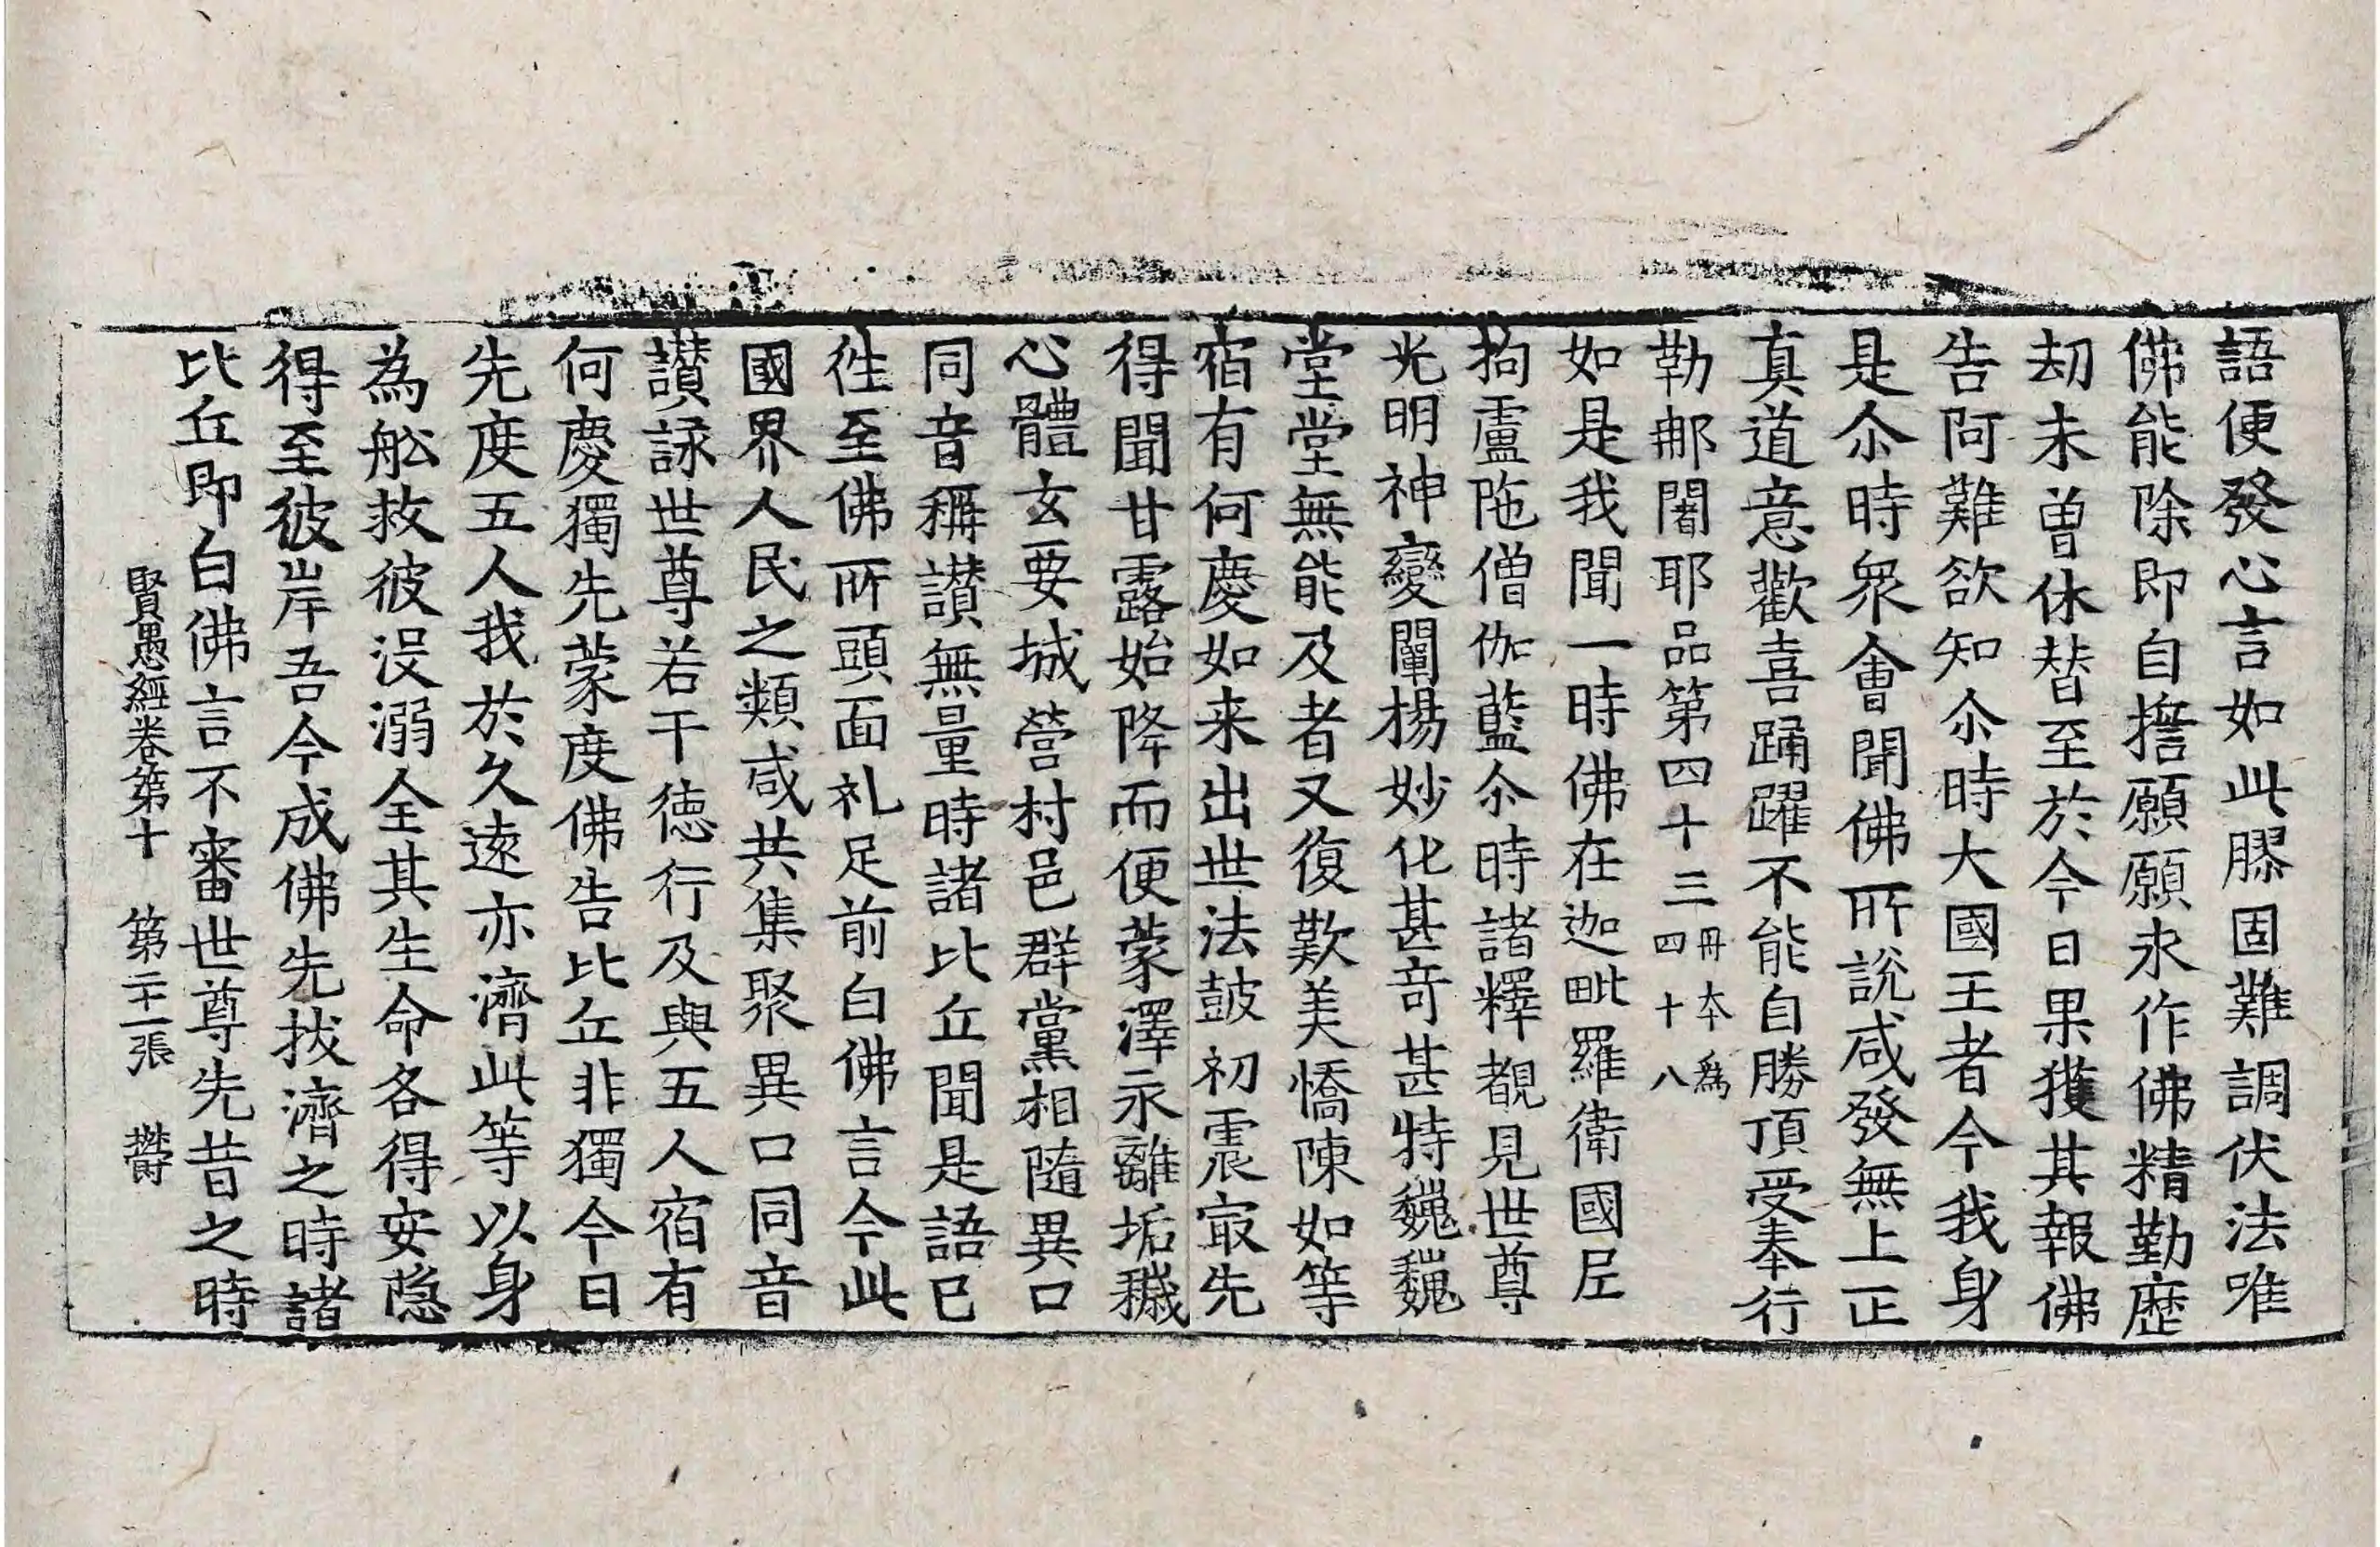 語便發心言如此膠固難調伏法唯
佛能除即自擔願願求作佛精勤歷
劫未曽休替至於今日果獲其報佛
告阿難欲知尒時大國王者今我身
是尒時衆會聞佛所說咸發無上正
真道意歡喜踊躍不能自勝頂受奉行
勒那闍耶品第四十三 丹本爲四十八
如是我聞一時佛在迦毗羅衛國尼
拘盧陁僧伽藍尒時諸釋覩見世尊
光明神變闡揚妙化甚竒甚特巍巍
堂堂無能及者又復歎美憍陳如等
宿有何慶如来出世法鼓初震㝡先
得聞甘露始降而便蒙澤永離垢穢
心體玄要城營村邑群黨相隨異口
同音稱讃無量時諸比丘聞是語已
徃至佛所頭面礼足前白佛言今此
國界人民之類咸共集聚異口同音
讃詠世尊若干德行及與五人宿有
何慶獨先蒙度佛告比丘非獨今日
先度五人我於久遠亦濟此等以身
為舩救彼没溺全其生命各得安隐
得至彼岸吾今成佛先拔濟之時諸
比丘即白佛言不審世尊先昔之時
賢愚經卷第十 第二十一張 欝